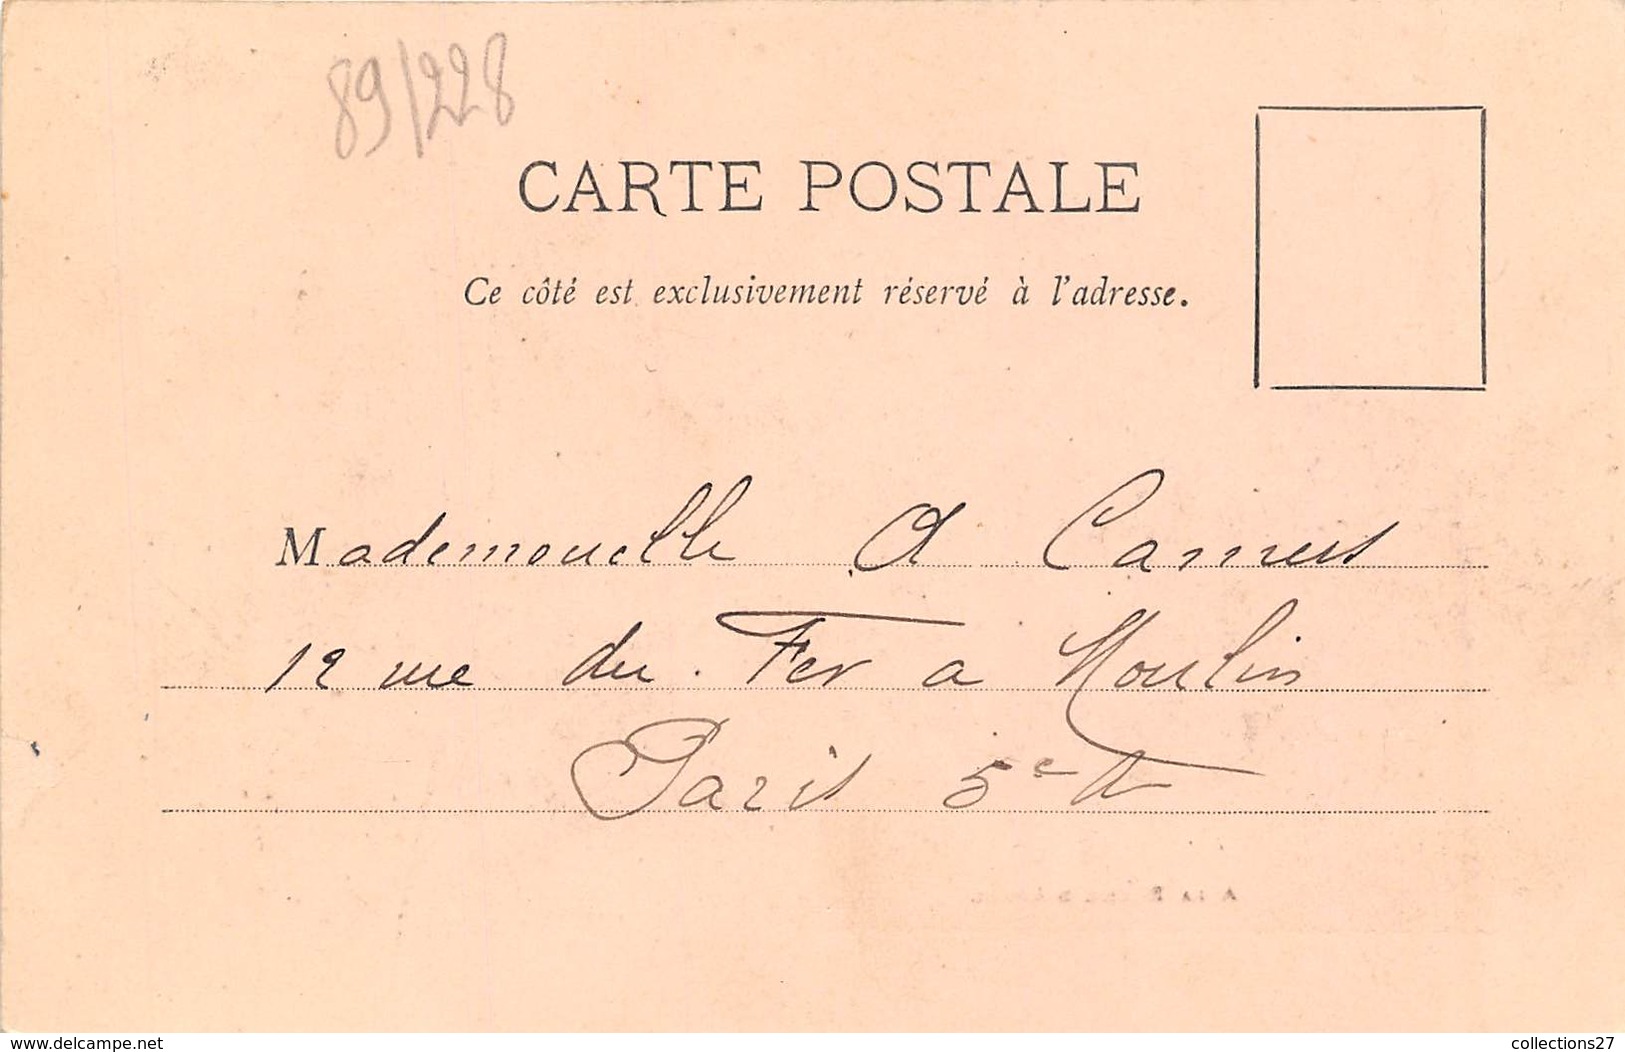 89/228
CARTE POSTALE
Ce côté est exclusivement réservé à l'adresse.
Mademoiselle A Camus
12 rue du Fer a Moulin
Paris 5e
www.delcampe.net
collections27